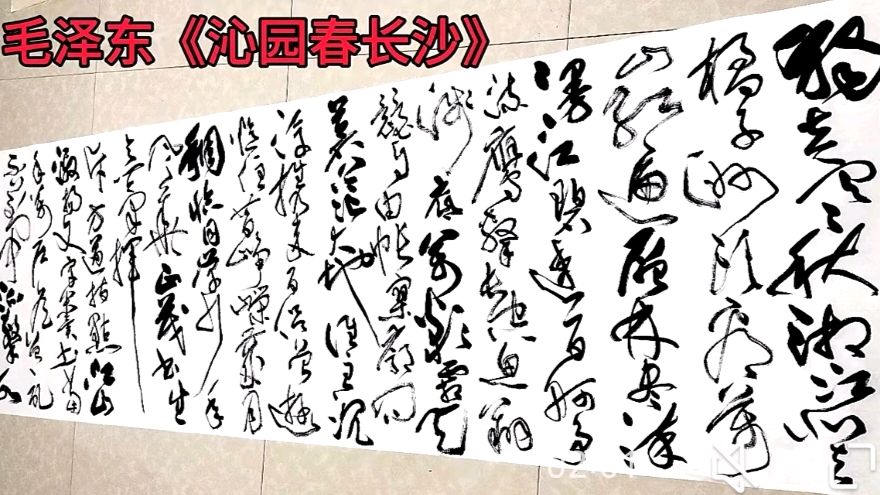 毛泽东《沁园春长沙》
独立寒秋湘江北去
橘子洲头看万
山红遍层林尽染
漫江碧透百舸争
流鹰击长空鱼翔
浅底万类霜天
竞自由怅寥廓问
苍茫大地谁主沉
浮携来百侣曾游
忆往昔峥嵘岁月
稠恰同学少年
风华正茂书生
意气挥
斥方遒指点江山
激扬文字粪土当
年万户侯曾记
否到中流击水